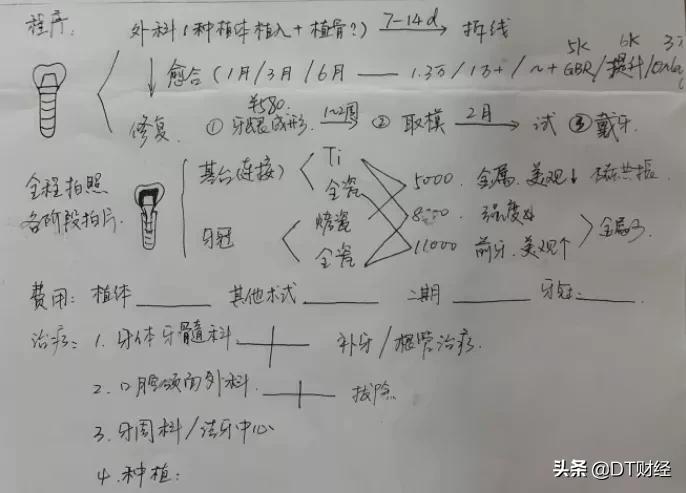 程序: 外科(种植体植入+植骨?) 7-14d 拆线
愈合(1月/3月/6月 — 1.3万/1万+/~+ 5K GBR/6K 提升/3万
¥580.
修复. ① 牙龈成形. 1~2周 ② 取模 2月 试 ③ 戴牙.
全程拍照
各阶段拍片.
基台(连接) Ti 全瓷
牙冠 烤瓷 全瓷
5000. 金属. 美观↓ 磁共振.
8000. 强度
11000 前牙. 美观个 全
费用: 植体 其他术式 二期 牙冠:
治疗: 1. 牙体牙髓科. 补牙/根管治疗.
2. 口腔颌面外科. 拔除
3. 牙周科/洁牙中心
4. 种植:
头条 @DT财经